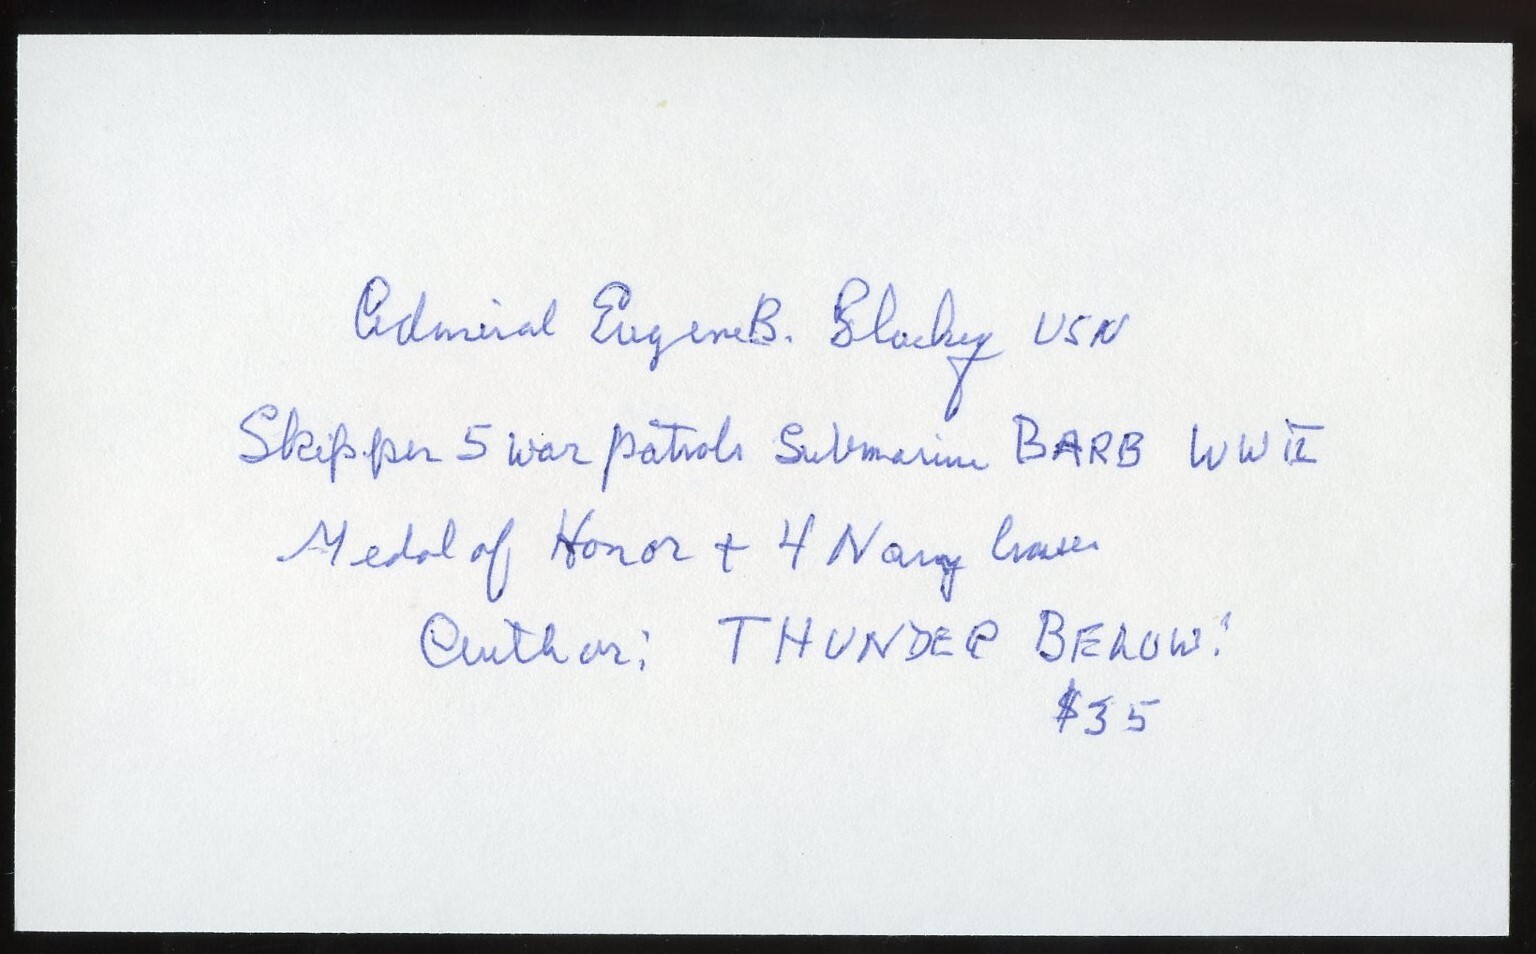 Admiral Eugene B. Fluckey USN
Skipper 5 war patrols Submarine BARB WW II
Medal of Honor + 4 Navy Crosses
Author: THUNDER BELOW!
$35